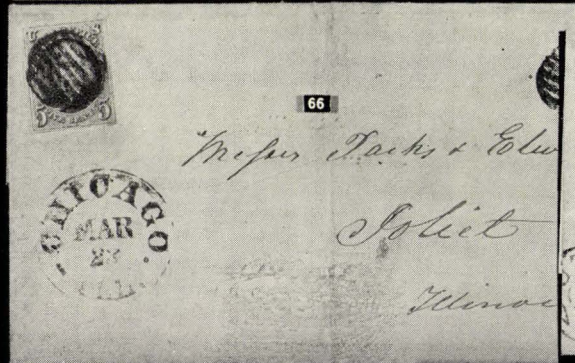 5 5
66
Messrs Parks & Elw
Joliet
Illinoi
CHICAGO
MAR
ILL.